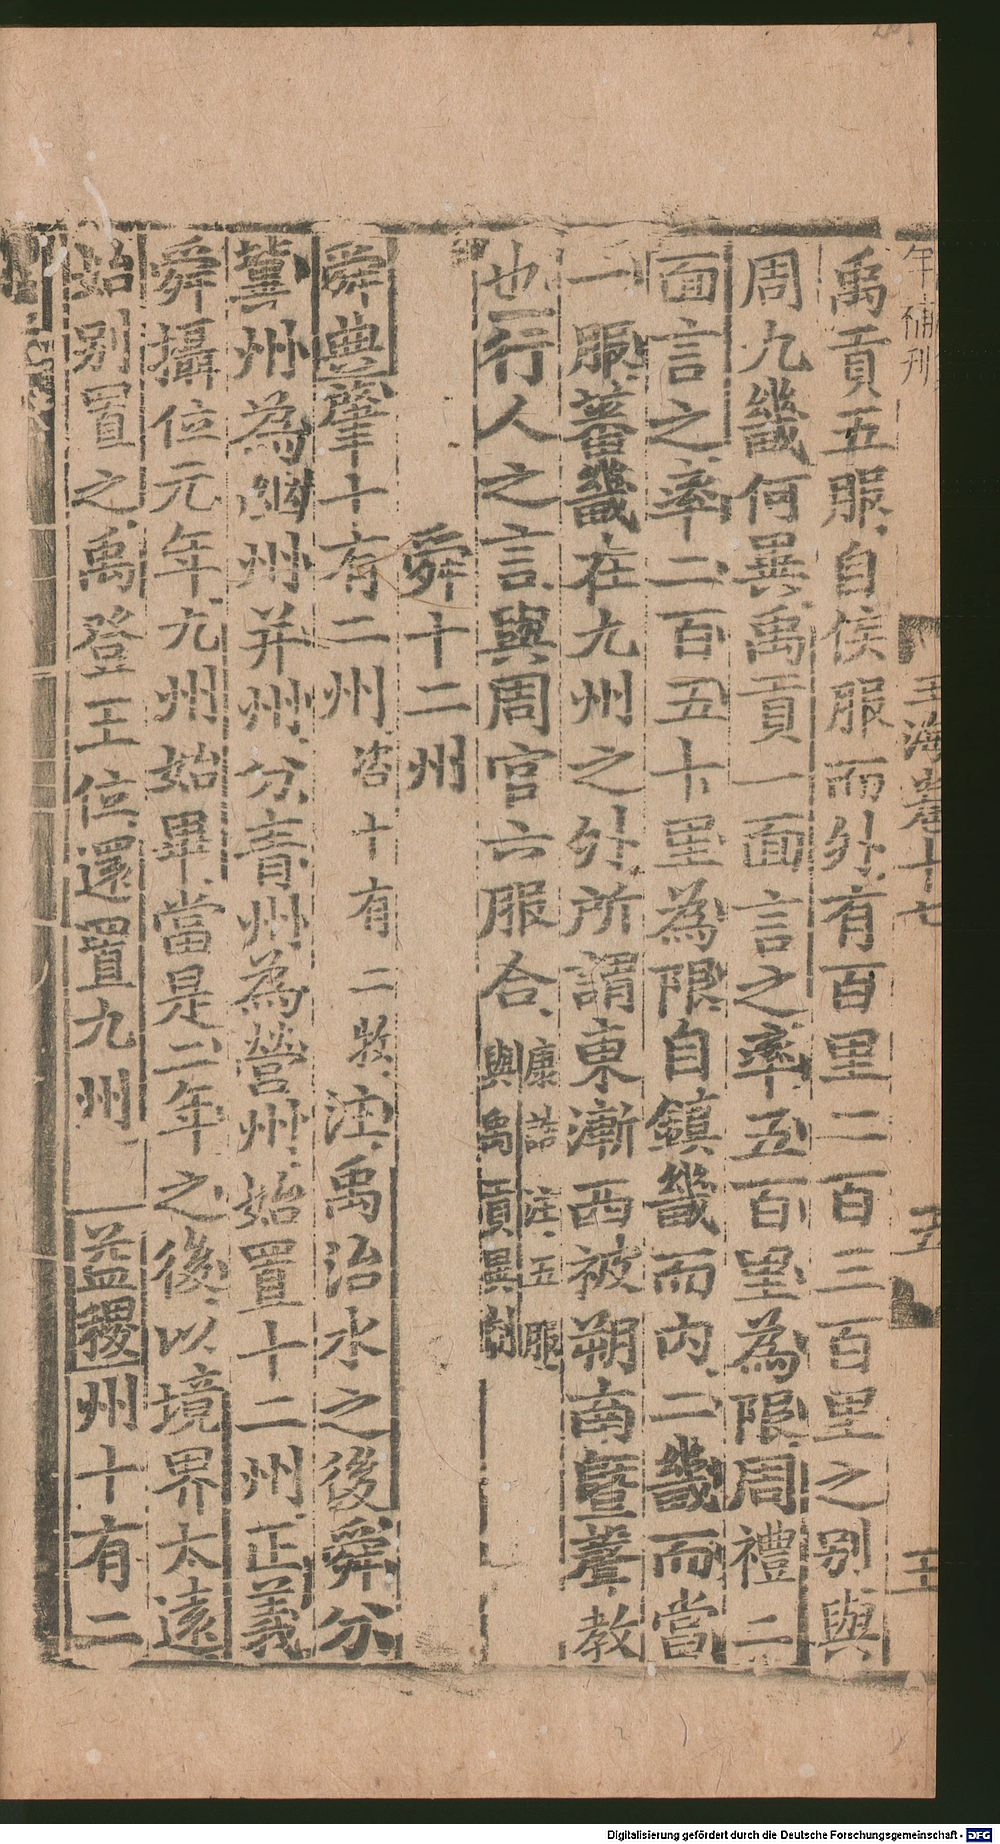 禹貢五服自侯服而外有百里二百三百里之别與
周九畿何異禹貢一面言之率五百里為限周禮二
面言之率二百五十里為限自鎮畿而内二畿而當
一服蕃畿在九州之外所謂東漸西被朔南暨聲教
也行人之言與周官六服合康誥注五服
與禹貢異制
舜十二州
舜典肇十有二州咨十有二牧注禹治水之後舜分
冀州為幽州并州分青州為營州始置十二州正義
舜攝位元年九州始畢當是二年之後以境界太遠
始别置之禹登王位還置九州 益稷州十有二
年補刊
玉海卷十七
五
Digitalisierung gefördert durch die Deutsche Forschungsgemeinschaft - DFG